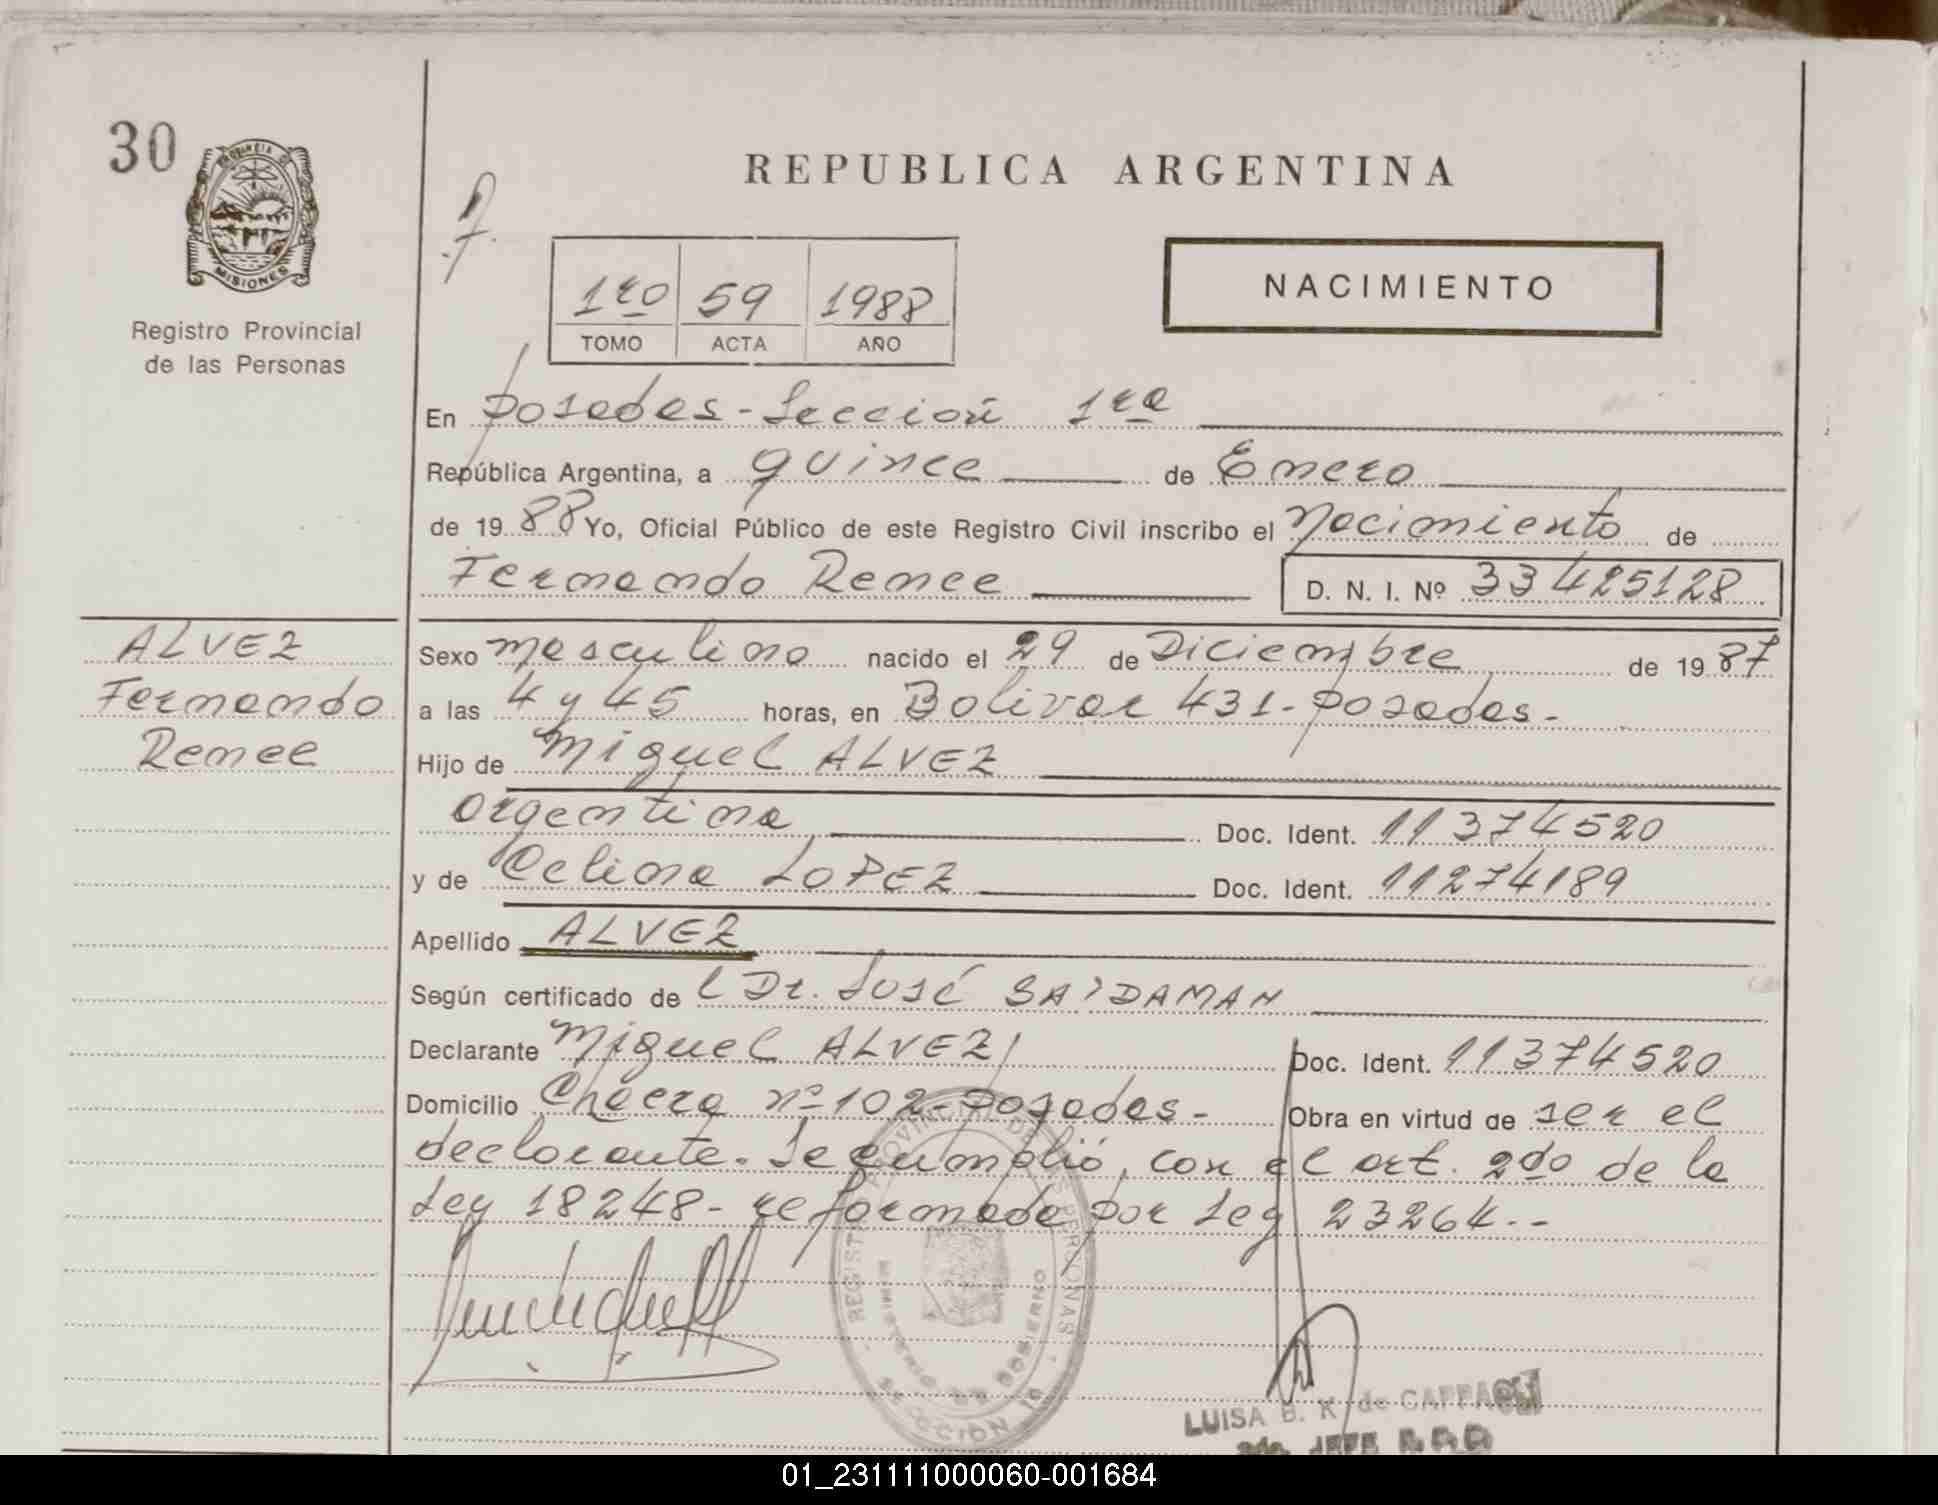 30
PROVINCIA DE
MISIONES
Registro Provincial
de las Personas
REPUBLICA ARGENTINA
1ro 59 1988
TOMO ACTA AÑO
NACIMIENTO
En Posadas - Sección 1ra
República Argentina, a quince de Enero
de 1988 Yo, Oficial Público de este Registro Civil inscribo el Nacimiento de
Fernando Renee D. N. I. Nº 33425128
ALVEZ
Fernando
Renee
Sexo masculino nacido el 29 de Diciembre de 1987
a las 4 y 45 horas, en Bolivar 431 - Posadas -
Hijo de Miguel ALVEZ
argentina Doc. Ident. 11374520
y de Celina LOPEZ Doc. Ident. 11274189
Apellido ALVEZ
Según certificado de l Dr. José SAIDAMAN
Declarante Miguel ALVEZ Doc. Ident. 11374520
Domicilio Chacra nº 102 - Posadas - Obra en virtud de ser el
declarante. Se cumplió, con el art. 2do de la
Ley 18248 - reformada por Ley 23264 --
REGISTRO PROVINCIAL DE LAS PERSONAS
MINISTERIO DE GOBIERNO
SECCION 1a
LUISA B. K. de
JEFE
01_231111000060-001684